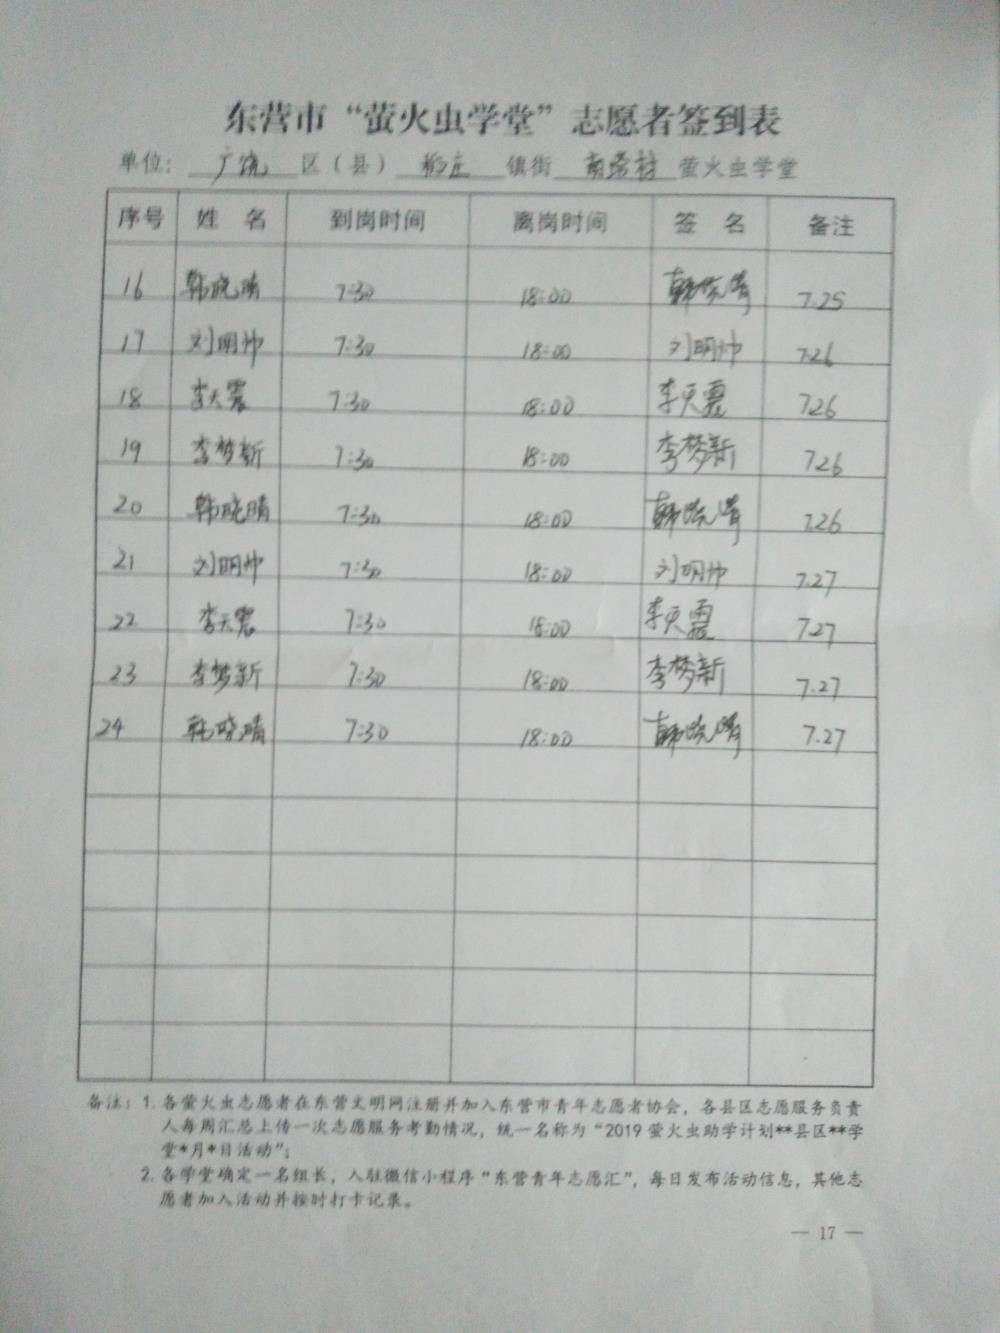 东营市“萤火虫学堂”志愿者签到表
单位：广饶区（县）稻庄镇街 萤火虫学堂
序号 姓名 到岗时间 离岗时间 签名 备注
16 韩晓晴 7:30 18:00 韩晓晴 7.25
17 刘明帅 7:30 18:00 刘明帅 7.26
18 李天震 7:30 18:00 李天震 7.26
19 李梦新 7:30 18:00 李梦新 7.26
20 韩晓晴 7:30 18:00 韩晓晴 7.26
21 刘明帅 7:30 18:00 刘明帅 7.27
22 李天震 7:30 18:00 李天震 7.27
23 李梦新 7:30 18:00 李梦新 7.27
24 韩晓晴 7:30 18:00 韩晓晴 7.27
备注：1. 各萤火虫志愿者在东营文明网注册并加入东营市青年志愿者协会，各县区志愿服务负责
人每周汇总上传一次志愿服务考勤情况，统一名称为“2019萤火虫助学计划**县区**学
堂*月*日活动”；
2. 各学堂确定一名组长，入驻微信小程序“东营青年志愿汇”，每日发布活动信息，其他志
愿者加入活动并按时打卡记录。
— 17 —